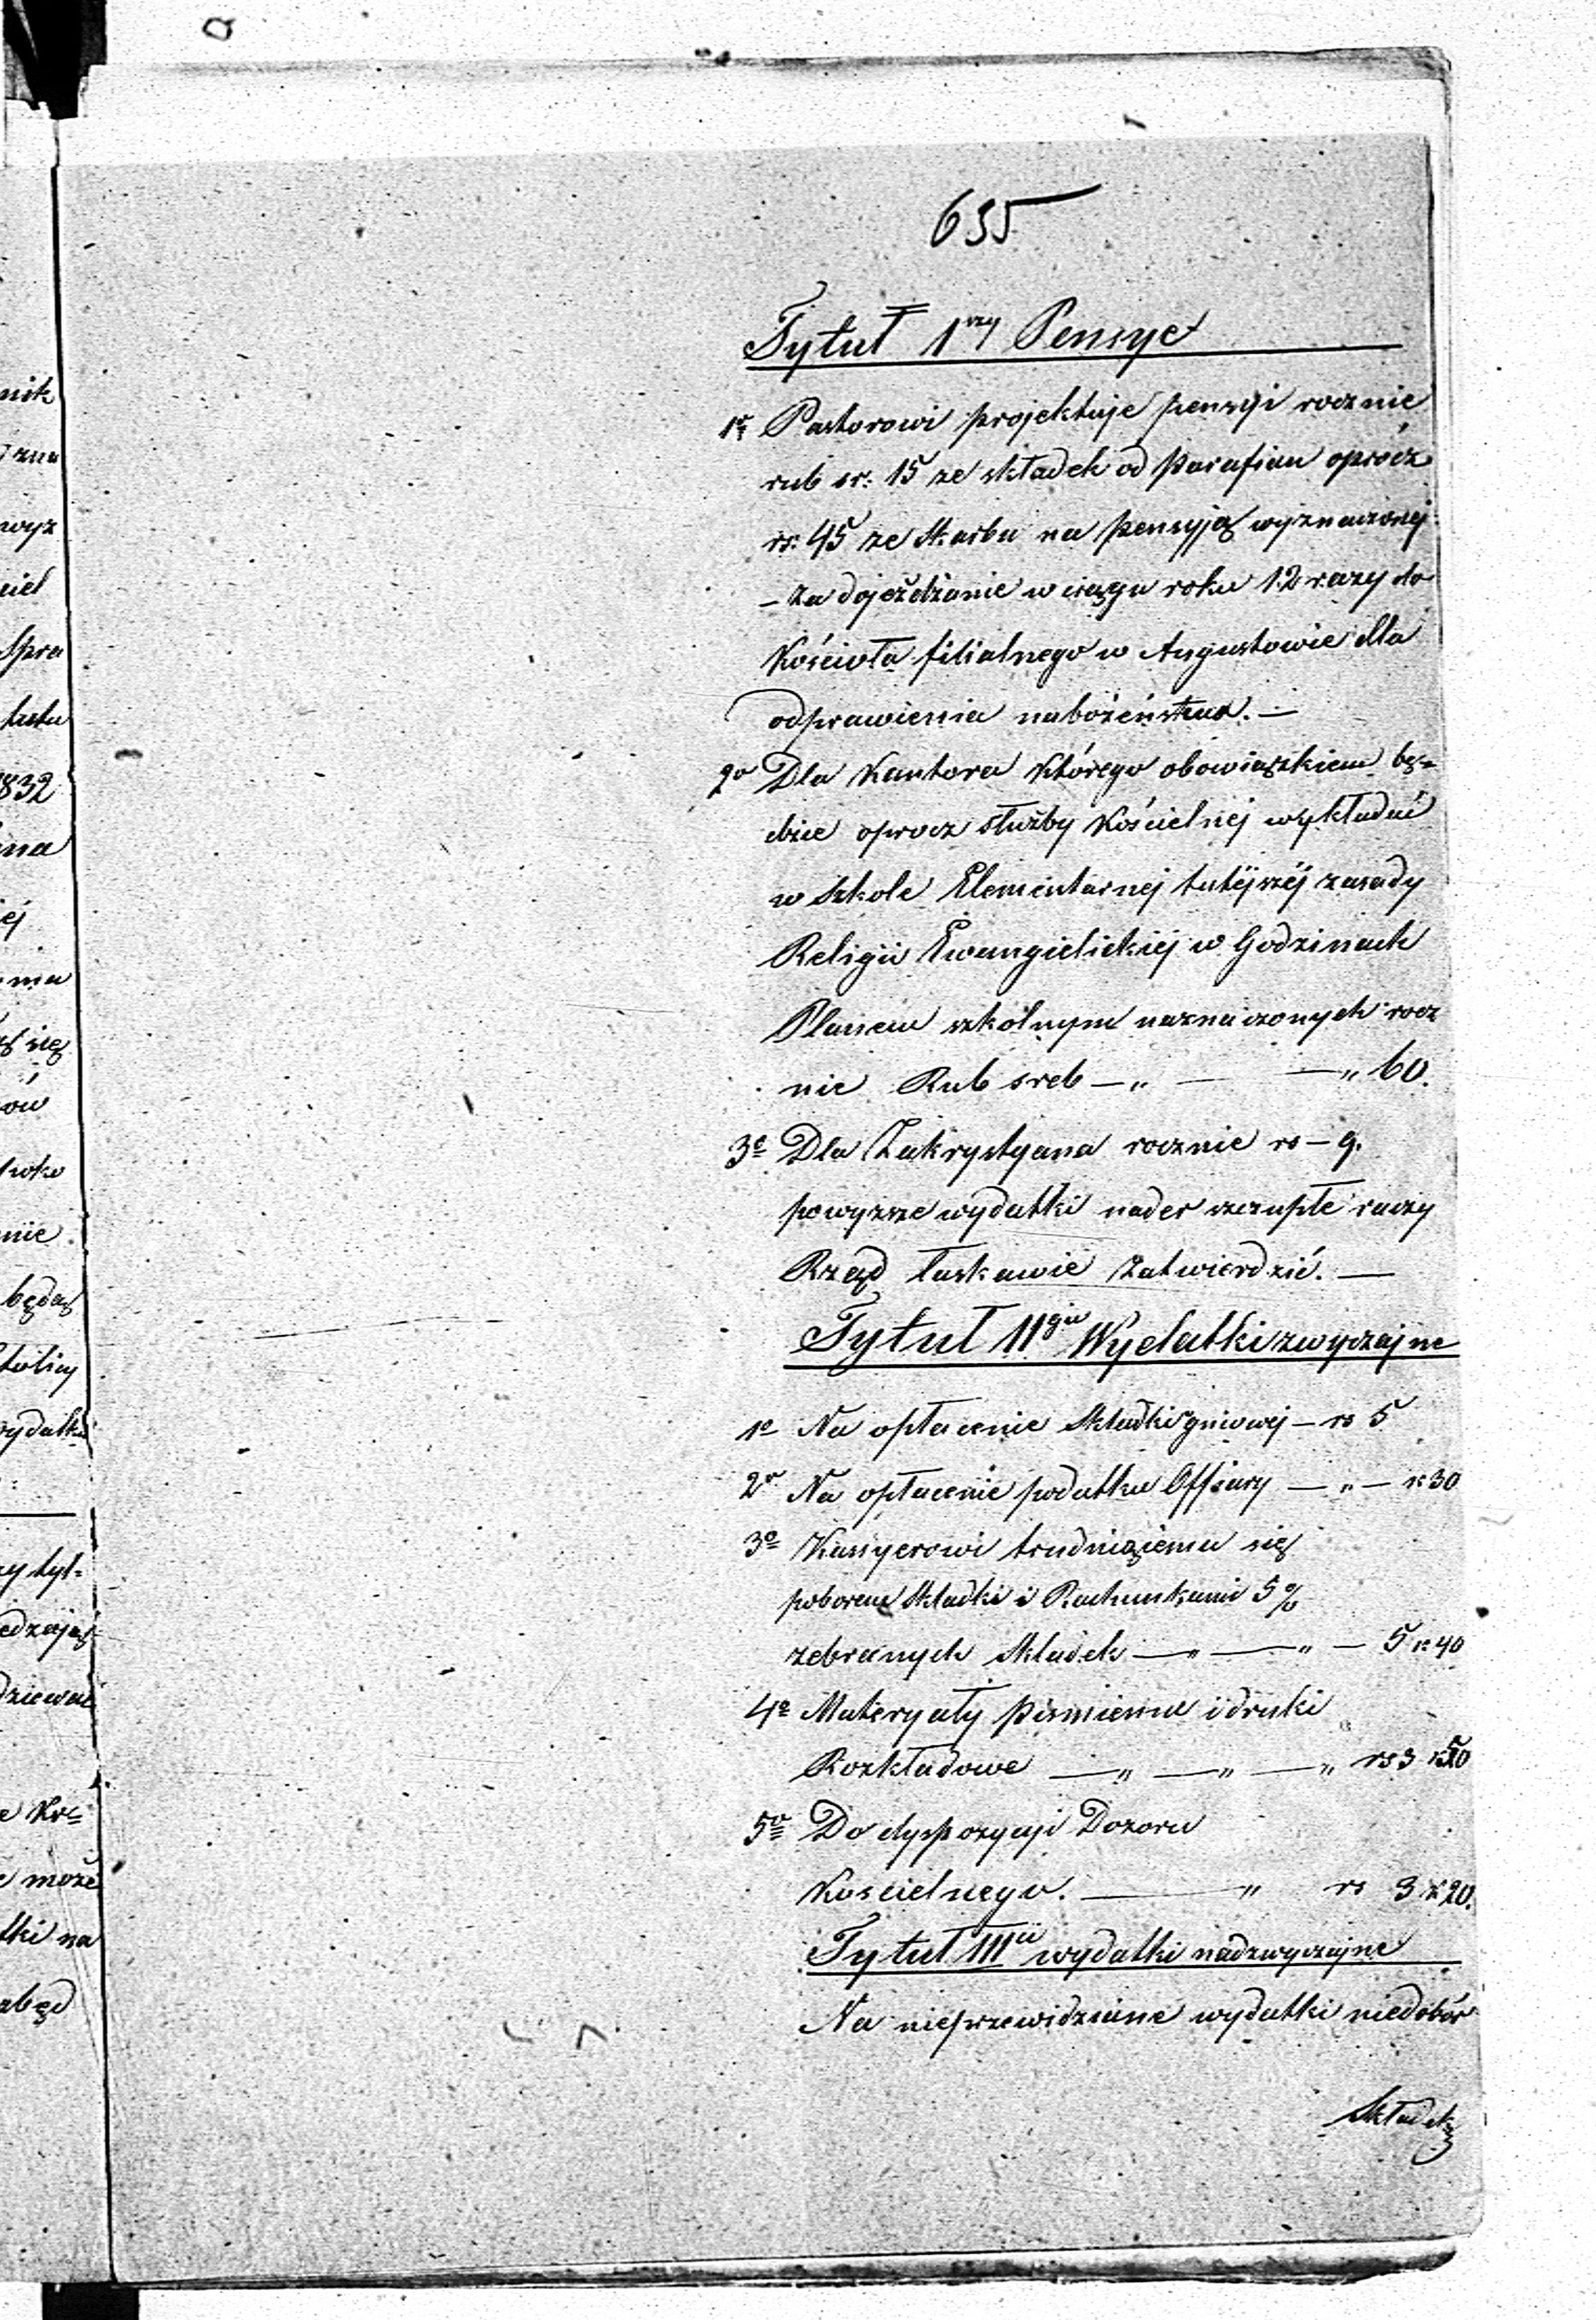 635
Tytuł 1szy Pensye
1e Pastorowi projektuje pensyi rocznie
rub sr: 15 ze składek od Parafian oprócz
rs: 45 ze Skarbu na pensyją wyznaczonej
– za dojeżdżanie w ciągu roku 12 razy do
Kościoła filialnego w Augustowie dla
odprawienia nabożeństwa. —
2o Dla Kantora którego obowiązkiem bę=
dzie oprocz służby Kościelnej wykładać
w Szkole Elementarnej tutejszéj zasady
Religii Ewangielickiéj w Godzinach
Planem szkólnym naznaczonych rocz
nie Rub sreb —„ — —„ 60.
3e Dla Zakrystyana rocznie rs — 9.
powyzsze wydatki nader szczupłe raczy
Rząd łaskawie Zatwierdzić. —
Tytuł IIgi Wydatki zwyczajne
1e Na opłacenie Składki gniowej — rs 5
2o Na opłacenie podatku Offiary — „ — k 30
3o Kassyerowi trudniącemu się
poborem Składki i Rachunkami 5 %
zebranych Składek —„ —„ — 5 k 40
4o Materyały piśmienne i druki
Rozkładowe —„ —„ —„ rs 3 k 50
5o Do dyspozycyi Dozoru
Koscielnego. —„ rs 3 k 20.
Tytuł III wydatki nadzwyczajne
Na nieprzewidziane wydatki niedobór
Składek
nik
zna
wyz
ciel
Spra
tutu
1832
ej
się
mie
będą
tolicy
wydatki
tyl=
może
tki na